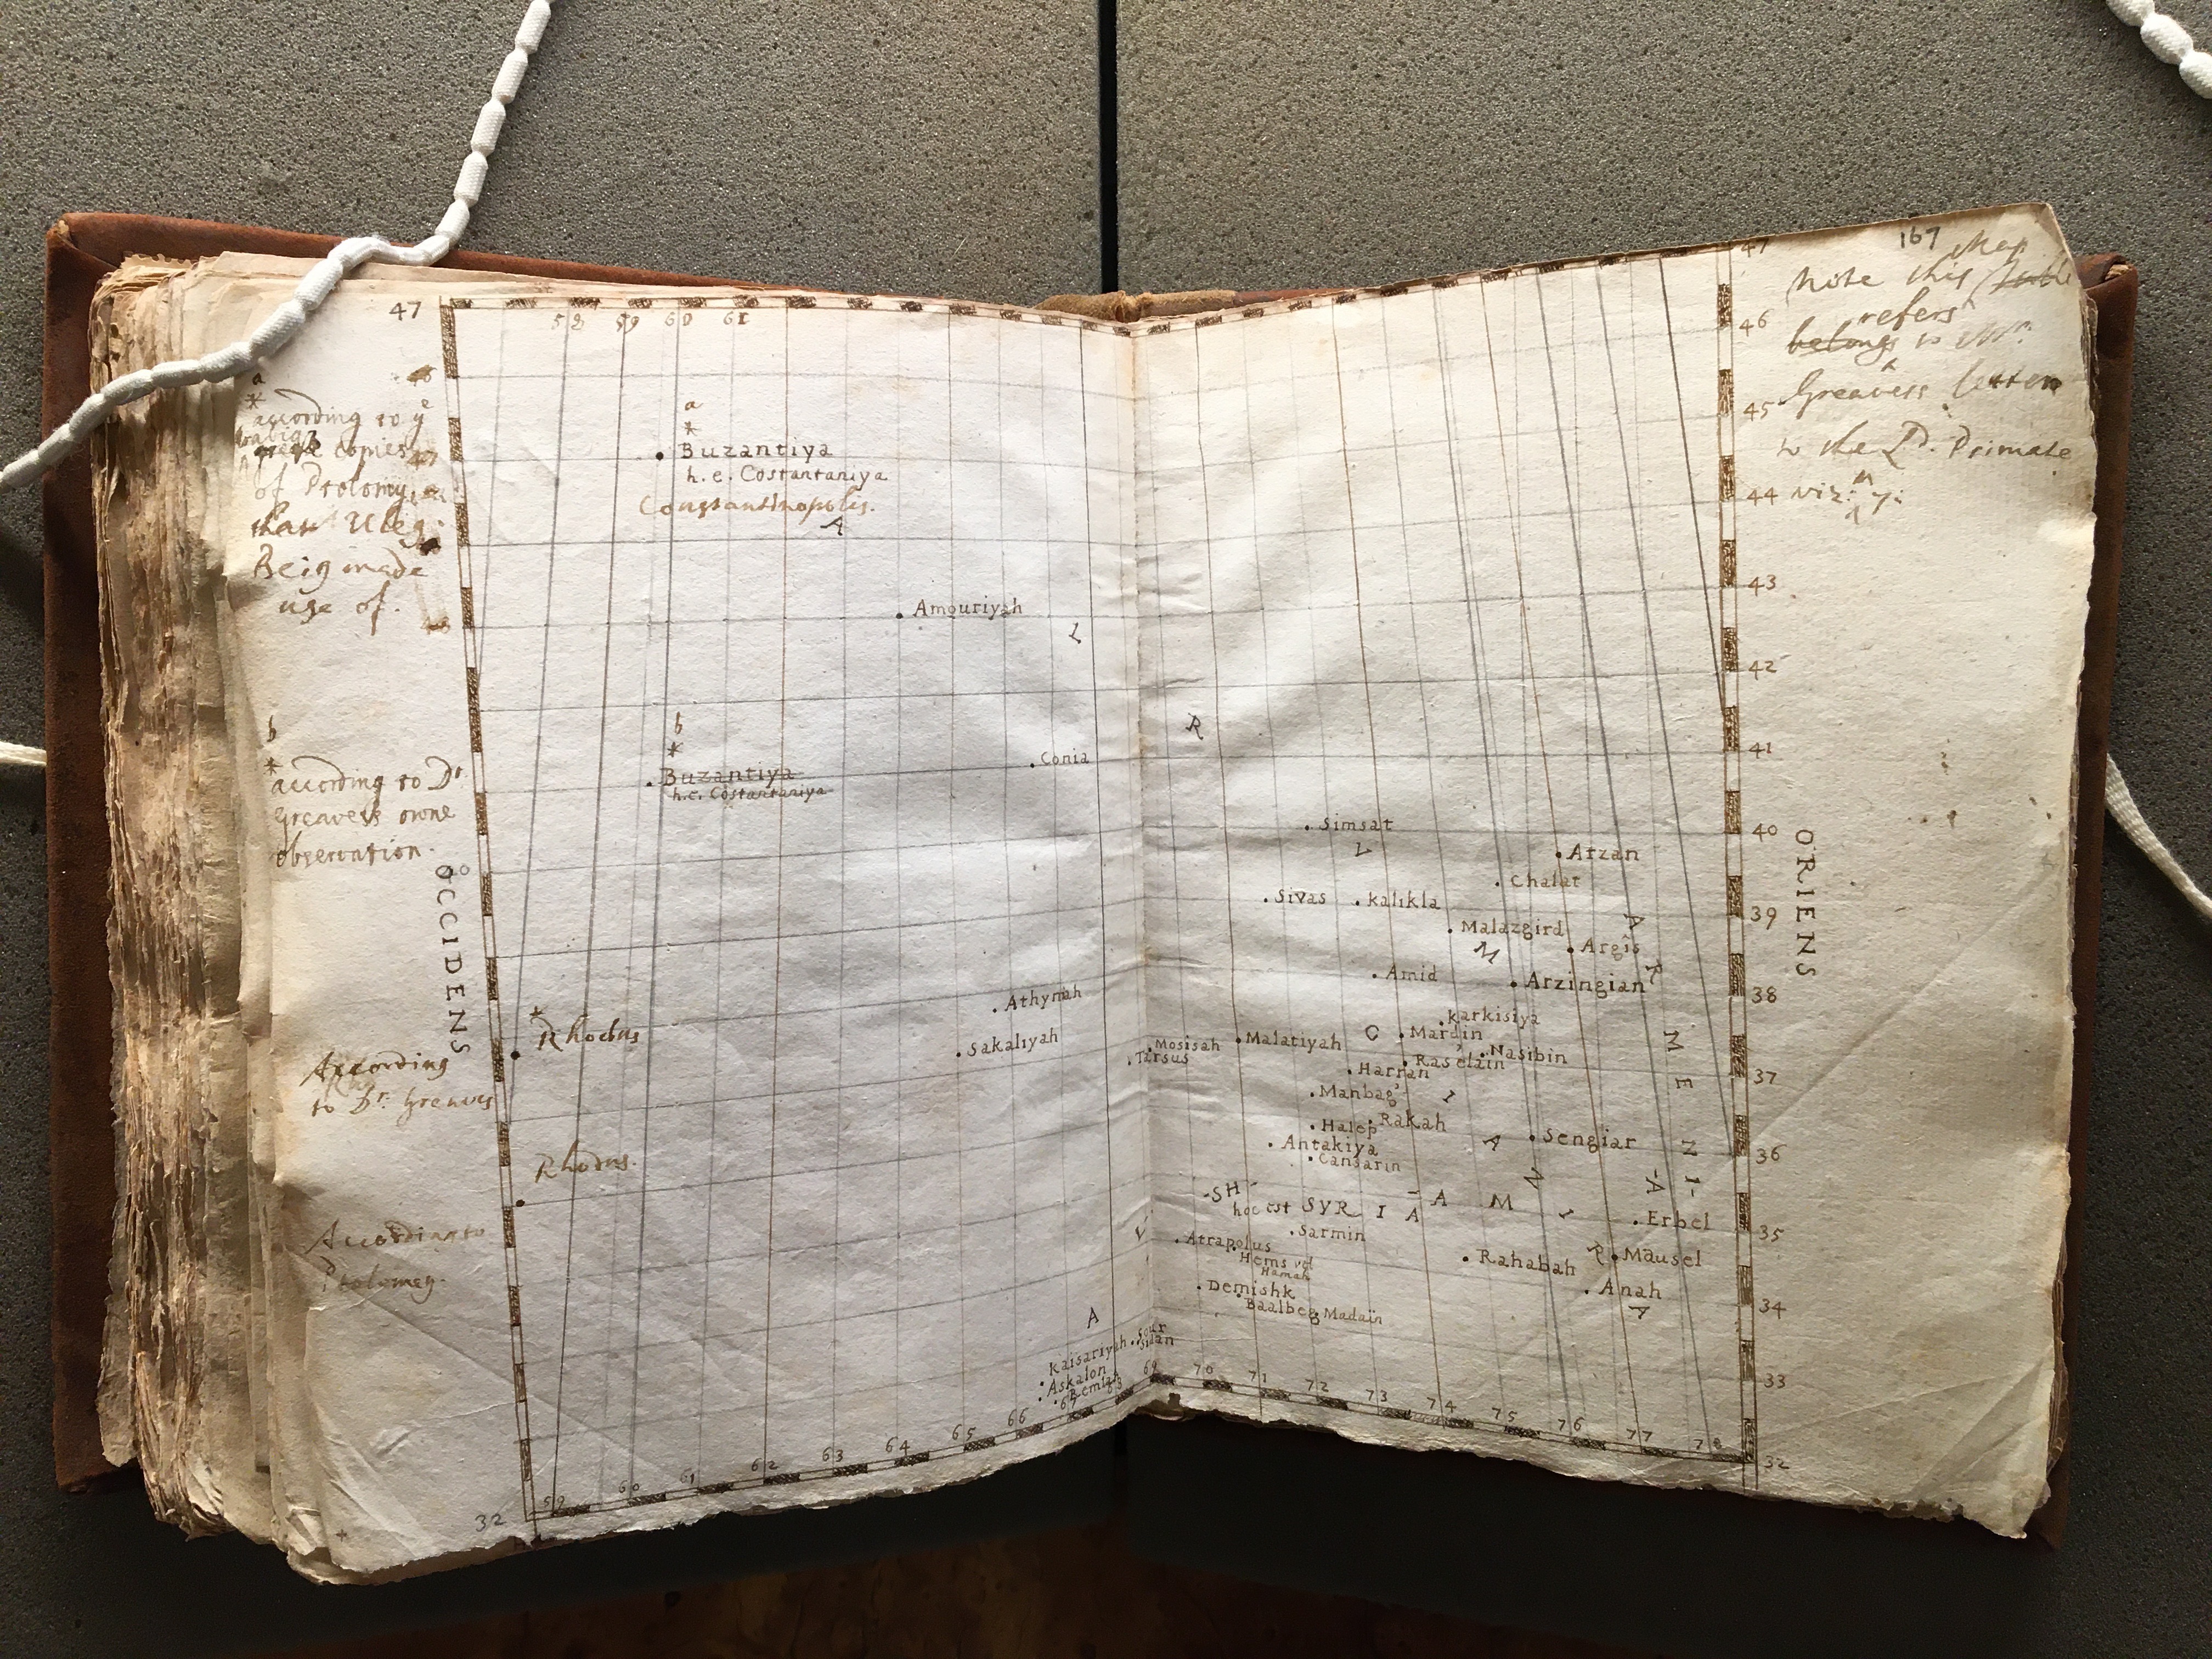 47
58 59 60 61
a
*
according to yͤ
copies
of Ptolomy,
than Uleg:
Beig made
use of.
a
*
Buzantiya
h.e. Costantaniya
Constantinopolis.
A
Amouriyah
L
b
*
according to Dʳ
Greaves owne
observation.
b
*
Buzantiya
h.e. Costantaniya
Conia
OCCIDENS
Athynah
Sakaliyah
*
Rhodus
According
to Dʳ. Greaves
Rhodus.
According to
Ptolomey.
A
Kaisariyah
Askalon
Remlah
32
59 60 61 62 63 64 65 66 67 68
167
Note this Map
refers
belongs to Mʳ.
Greavess letter
to the Lᵈ. Primate
viz: 7:
47
46
45
44
43
42
41
40
39
38
37
36
35
34
33
32
ORIENS
R
Simsat
V
Arzan
Chalat
Sivas
Kalikla
Malazgird
A
M
Argis
R
Amid
Arzingian
Karkisiya
M
Malatiyah
C
Mardin
Mosisah
Tarsus
Nasibin
Raselain
E
Harran
Manbag
I
Halep
Rakah
A
Sengiar
N
Antakiya
Cansarin
N
A
I
SH
A
M
hoc est SYRIA
I
Erbel
Sarmin
Atrapolus
Rahabah
R
Mausel
Hems vel
Hamah
Anah
Demishk
Baalbeg
Madain
A
Sour
Sidan
69 70 71 72 73 74 75 76 77 78